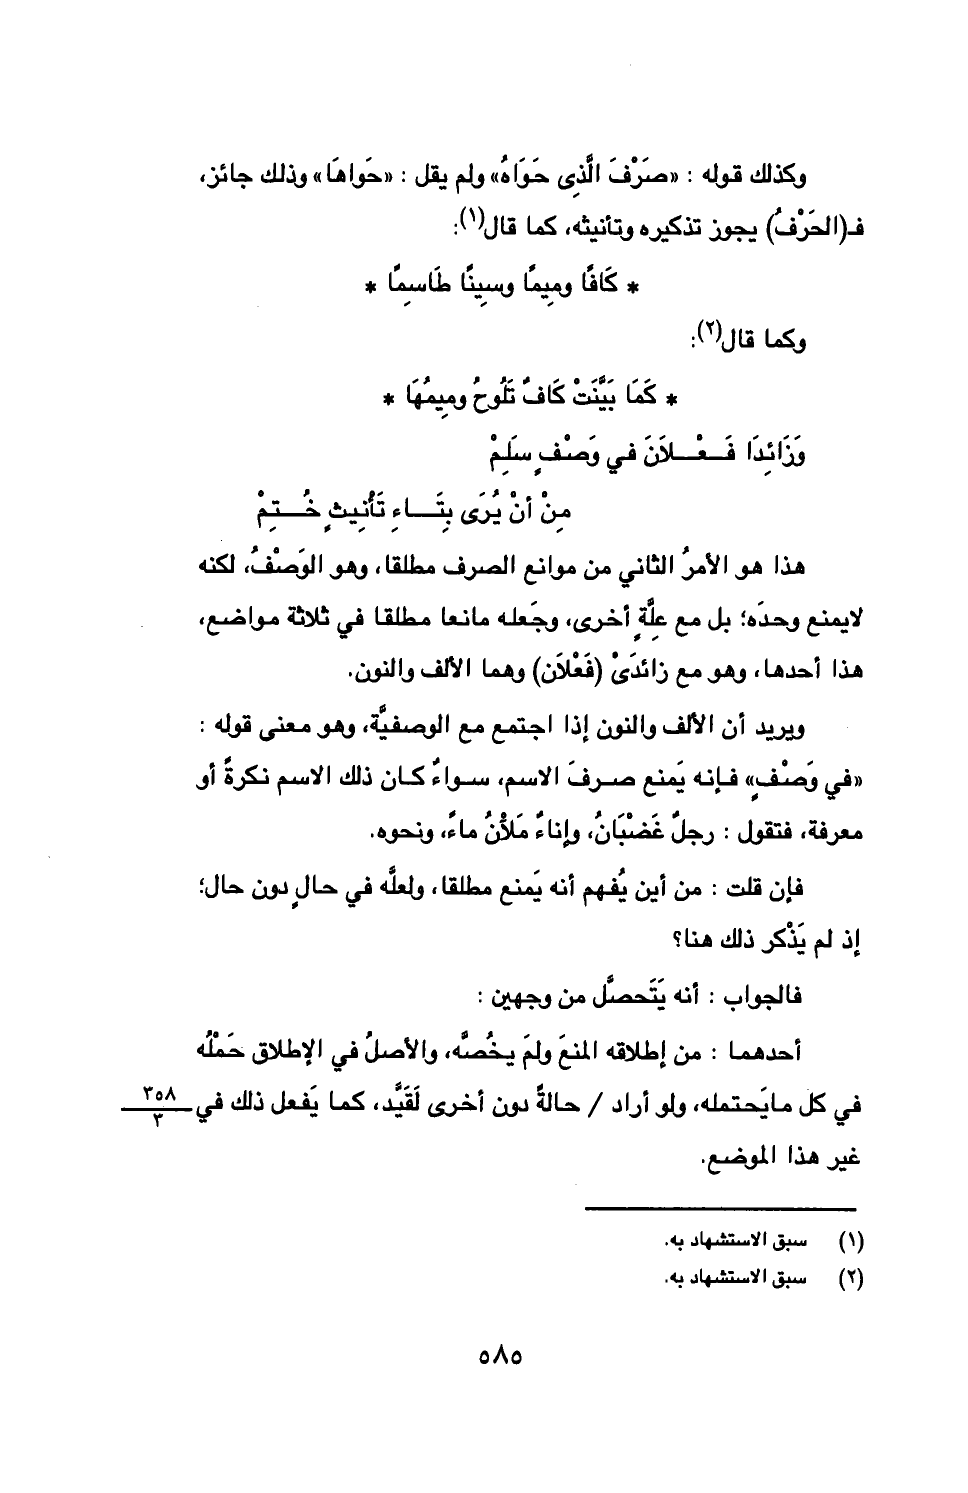 وكذلك قوله : «صَرْفَ الَّذِى حَوَاهُ» ولم يقل : «حَواهَا» وذلك جائز،
فـ(الحَرْفُ) يجوز تذكيره وتأنيثه، كما قال(١):
* كَافًا ومِيمًا وسِينًا طَاسِمًا *
وكما قال(٢):
* كَمَا بَيَّنَتْ كَافٌ تَلُوحُ ومِيمُهَا *
وَزَائِدَا فَـعْـلاَنَ في وَصْفٍ سَلِمْ
مِنْ أنْ يُرَى بِتَـاءِ تَأْنِيثٍ خُـتِمْ
هذا هو الأمرُ الثاني من موانع الصرف مطلقا، وهو الوَصْفُ، لكنه
لايمنع وحدَه؛ بل مع عِلَّةٍ أخرى، وجَعله مانعا مطلقا في ثلاثة مواضع،
هذا أحدها، وهو مع زائدَىْ (فَعْلاَن) وهما الألف والنون.
ويريد أن الألف والنون إذا اجتمع مع الوصفيَّة، وهو معنى قوله :
«في وَصْفٍ» فإنه يَمنع صرفَ الاسم، سواءٌ كان ذلك الاسم نكرةً أو
معرفة، فتقول : رجلٌ غَضْبَانُ، وإناءٌ مَلأنُ ماءً، ونحوه.
فإن قلت : من أين يُفهم أنه يَمنع مطلقا، ولعلَّه في حالٍ دون حال؛
إذ لم يَذْكر ذلك هنا؟
فالجواب : أنه يَتَحصَّل من وجهين :
أحدهما : من إطلاقه المنعَ ولمَ يخُصَّه، والأصلُ في الإطلاق حَمْلُه
في كل مايَحتمله، ولو أراد / حالةً دون أخرى لَقَيَّد، كما يَفعل ذلك في ٣٥٨/٣
غير هذا الموضع.
(١) سبق الاستشهاد به.
(٢) سبق الاستشهاد به.
٥٨٥